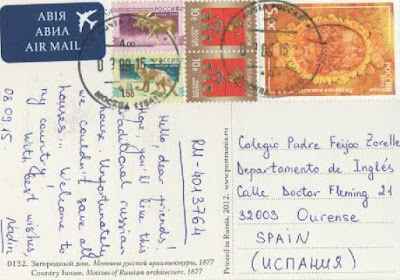 АВІЯ
АВИА
AIR MAIL
РОССИЯ
4.00
РОССИЯ
10 Р
10 Р
РОССИЯ
МОСКВА
RU-4013764
Hello, dear friends!
Hope, you'll like this
traditional russian
house. Unfortunately,
we couldn't save all
houses... Welcome to
my country!
With best wishes,
Nadia
08.09.15
Printed in Russia, 2012.
Colegio Padre Feijoo Zorelle
Departamento de Inglés
Calle Doctor Fleming 21
32003 Ourense
SPAIN
(ИСПАНИЯ)
0132. Загородный дом. Мотивы русской архитектуры, 1877
Country house. Motives of Russian architecture, 1877